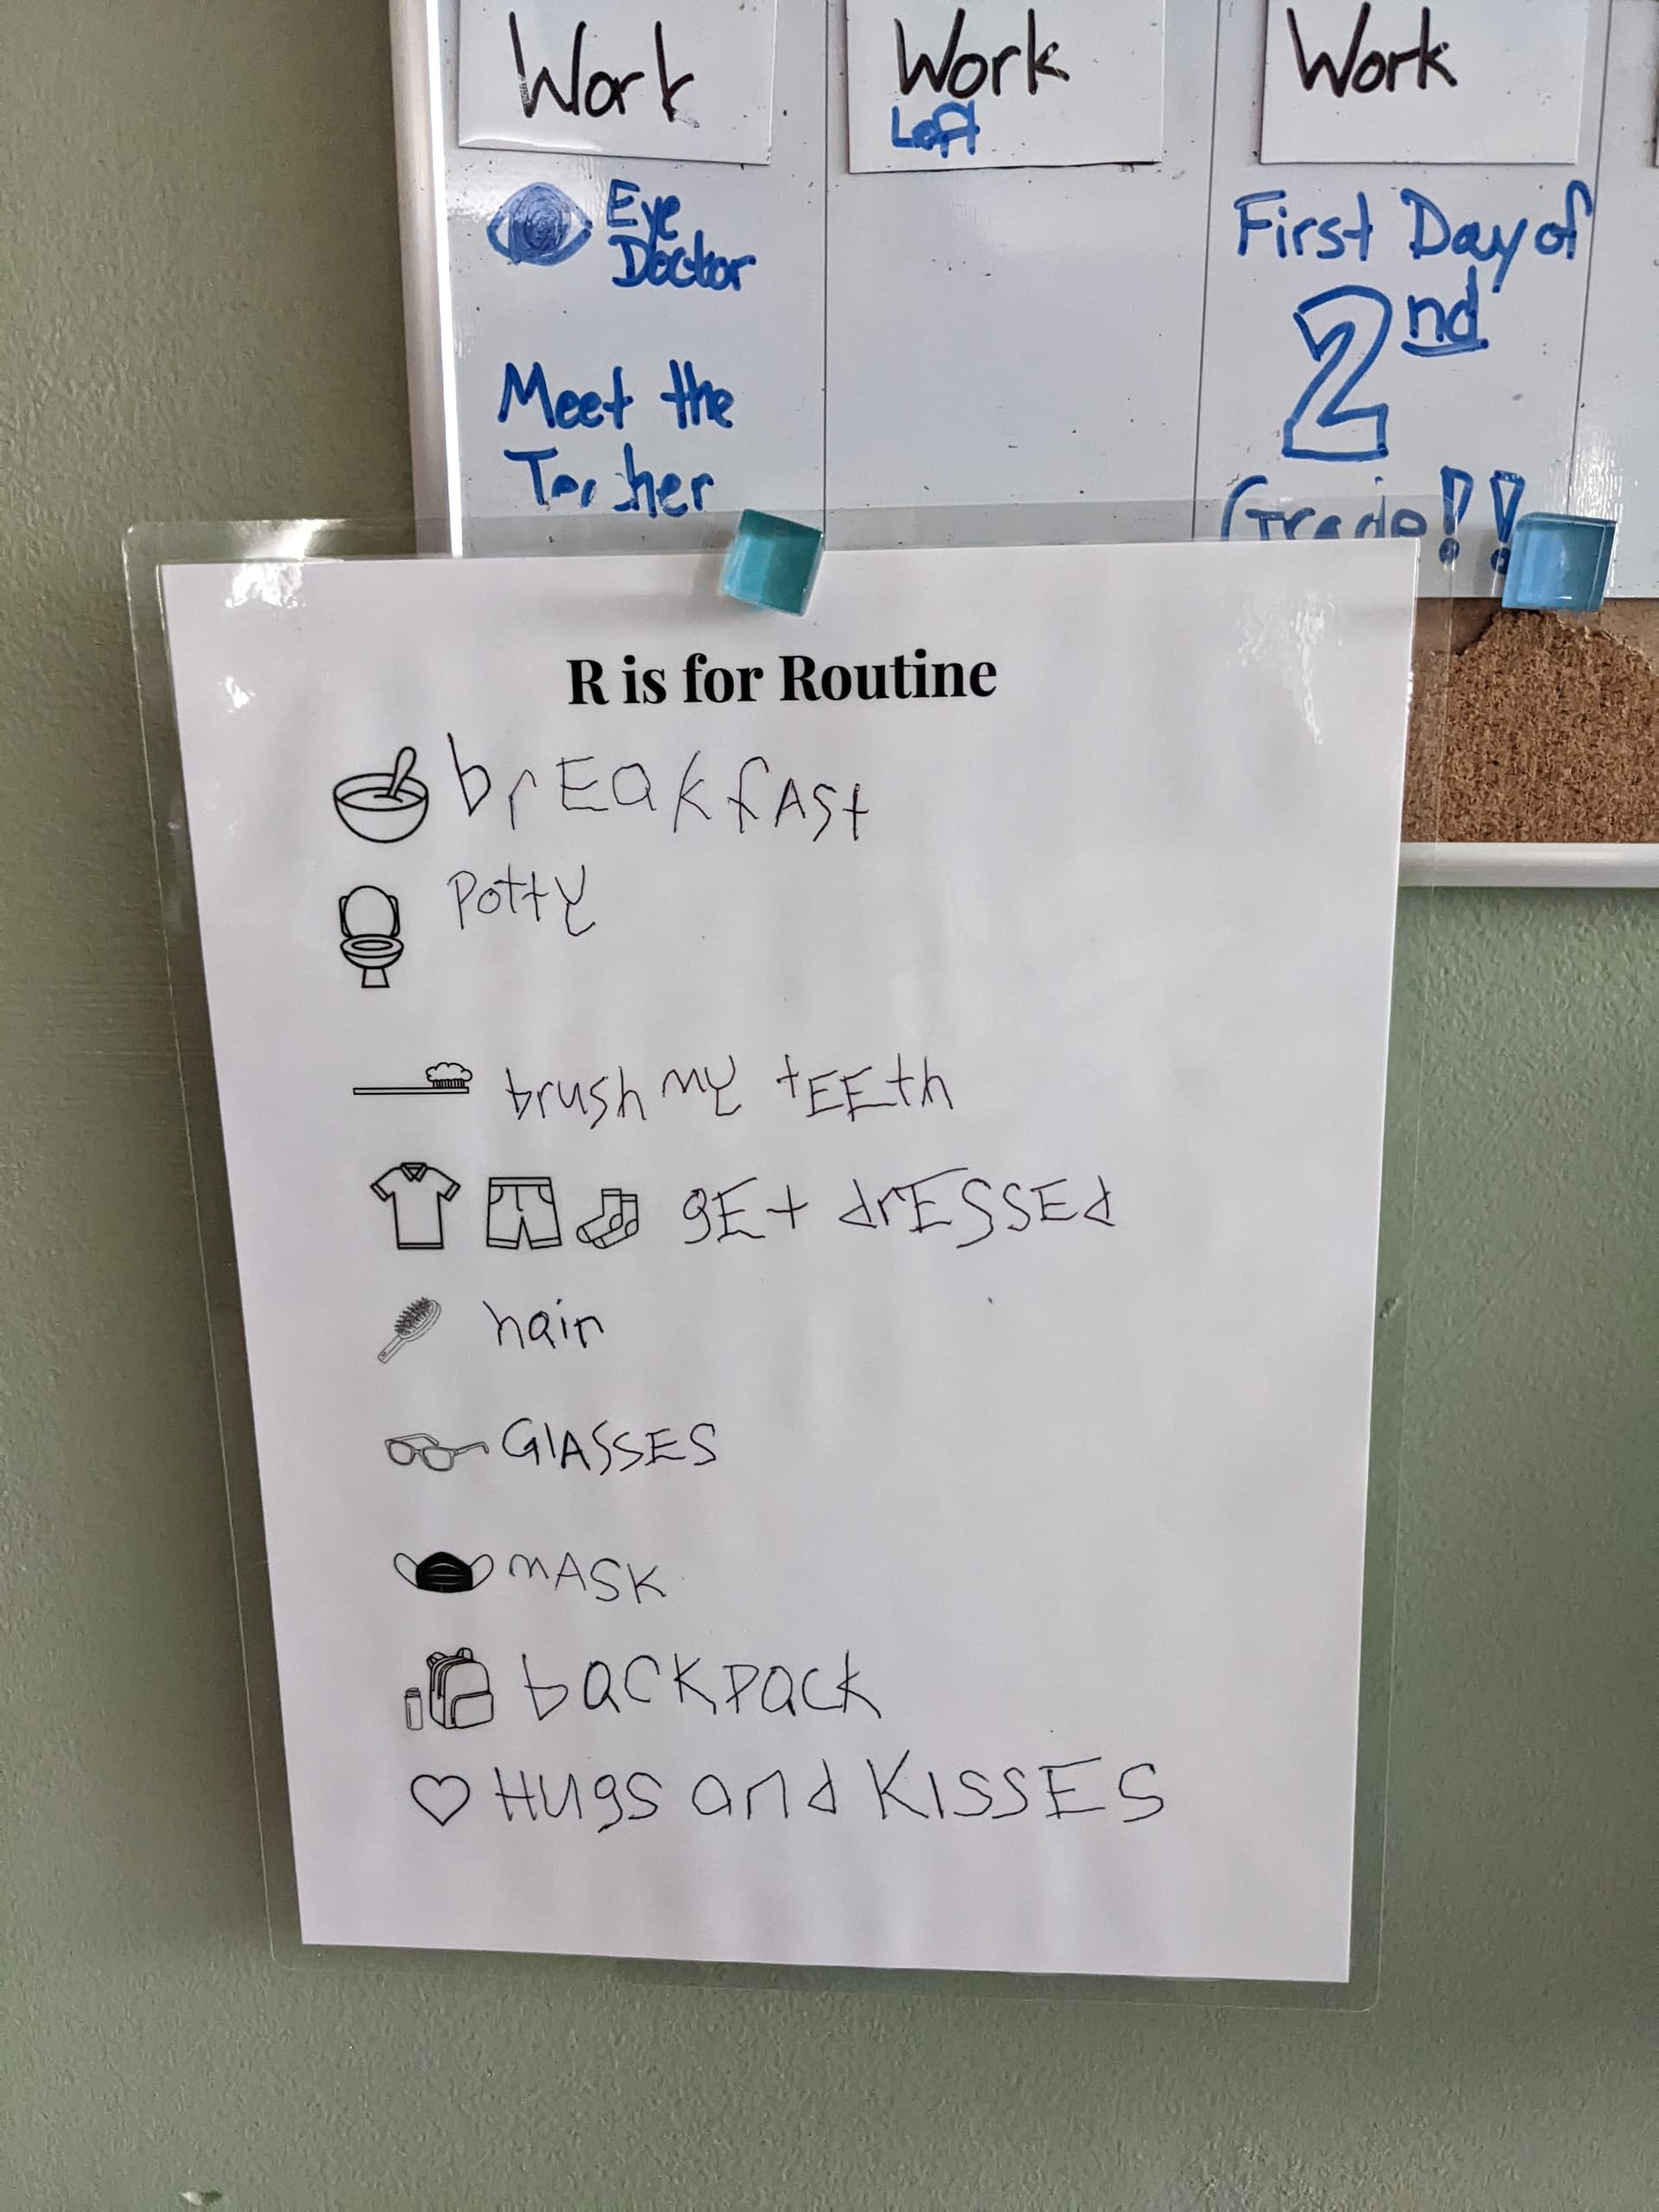 Work
Work
Work
Left
Eye
Doctor
First Day of
2nd
Meet the
Teacher
Grade!!
R is for Routine
brEakfASt
Potty
brush my tEEth
gEt drESSEd
hair
GlASSES
mASK
backpack
Hugs and KISSES